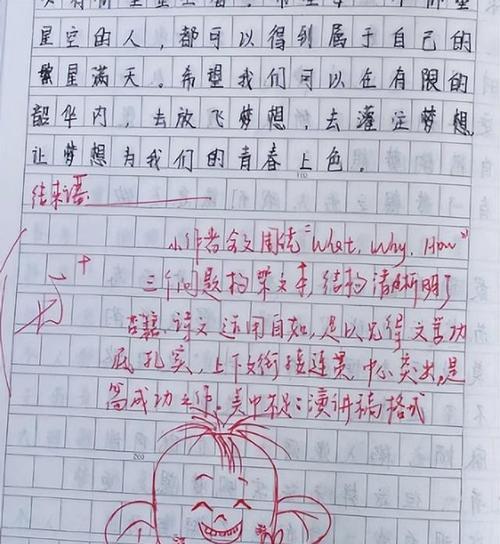 星空的人，都可以得到属于自己的
繁星满天。希望我们可以在有限的
韶华内，去放飞梦想，去灌注梦想，
让梦想为我们的青春上色。
结束语
小作者全文围绕"What, Why, How"
三个问题构架文章，结构清晰明了
古籍、诗文运用自如，足以见得文学功
底扎实，上下文衔接连贯，中心突出，是
篇成功之作。美中不足：演讲稿格式